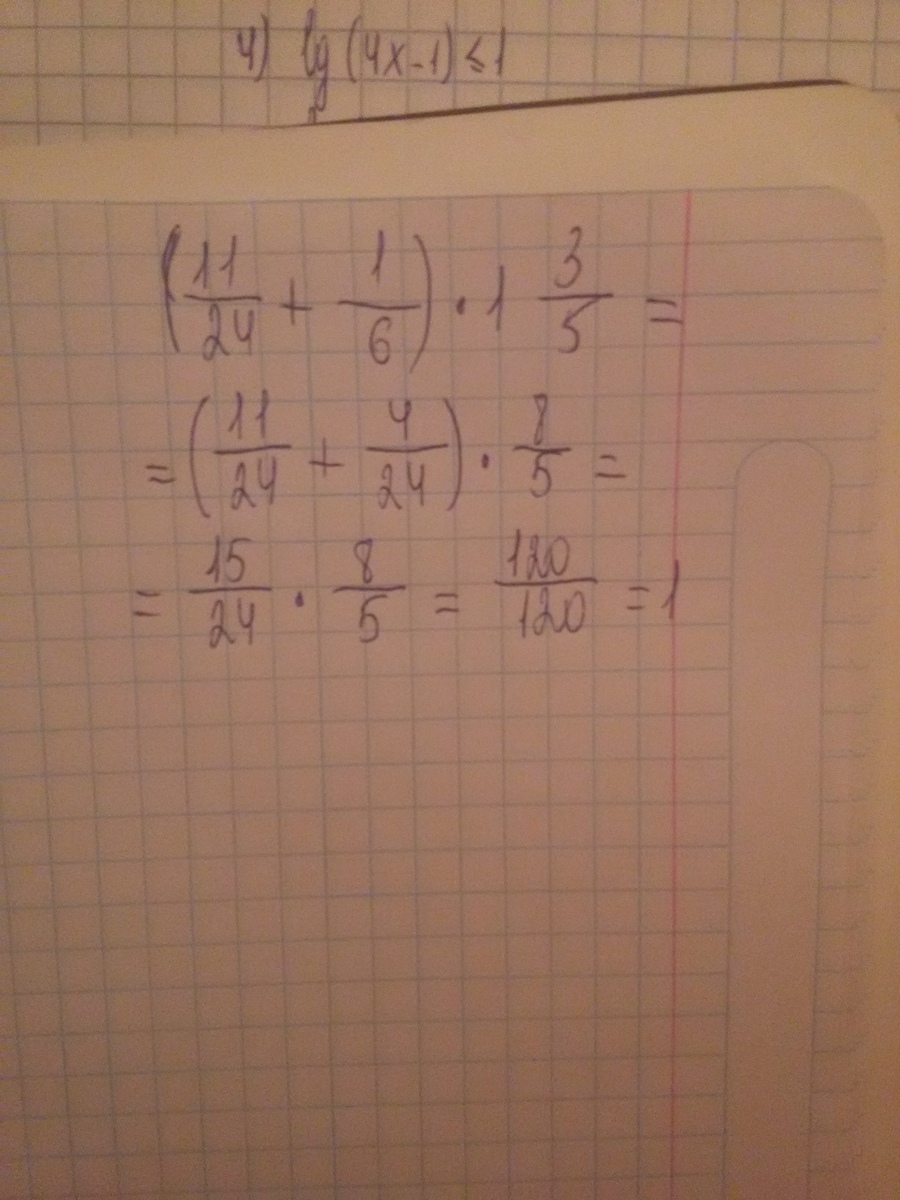 4) lg (4x-1) ≤ 1
(11/24 + 1/6) · 1 3/5 =
= (11/24 + 4/24) · 8/5 =
= 15/24 · 8/5 = 120/120 = 1